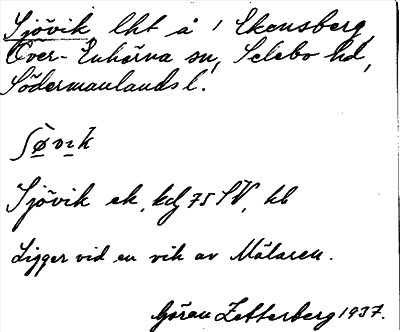 Sjövik lht å 1 Ekensberg,
Över-Enhörna sn, Selebo hd,
Södermanlands l.
Sjövik ek, kbl 75 SV, hb
Ligger vid en vik av Mälaren.
Göran Zetterberg 1937.